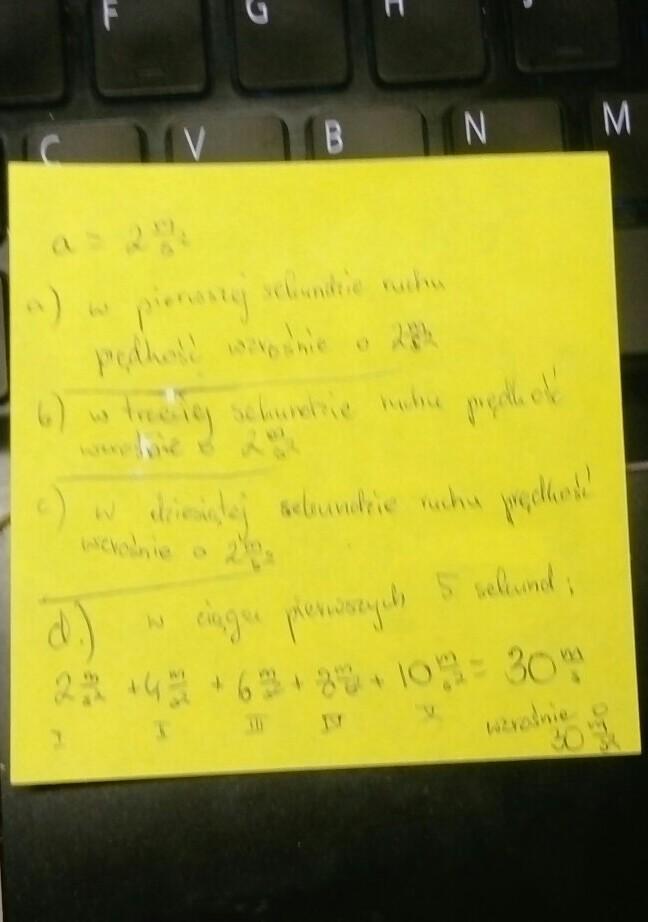 F G H
C V B N M
a = 2 m/s²
a) w pierwszej sekundzie ruchu
prędkość wzrośnie o 2 m/s²
b) w trzeciej sekundzie ruchu prędkość
wzrośnie o 2 m/s²
c) w dziesiątej sekundzie ruchu prędkość
wzrośnie o 2 m/s²
d.) w ciągu pierwszych 5 sekund:
2 m/s² + 4 m/s² + 6 m/s² + 8 m/s² + 10 m/s² = 30 m/s
I II III IV V
wzrośnie o
30 m/s²